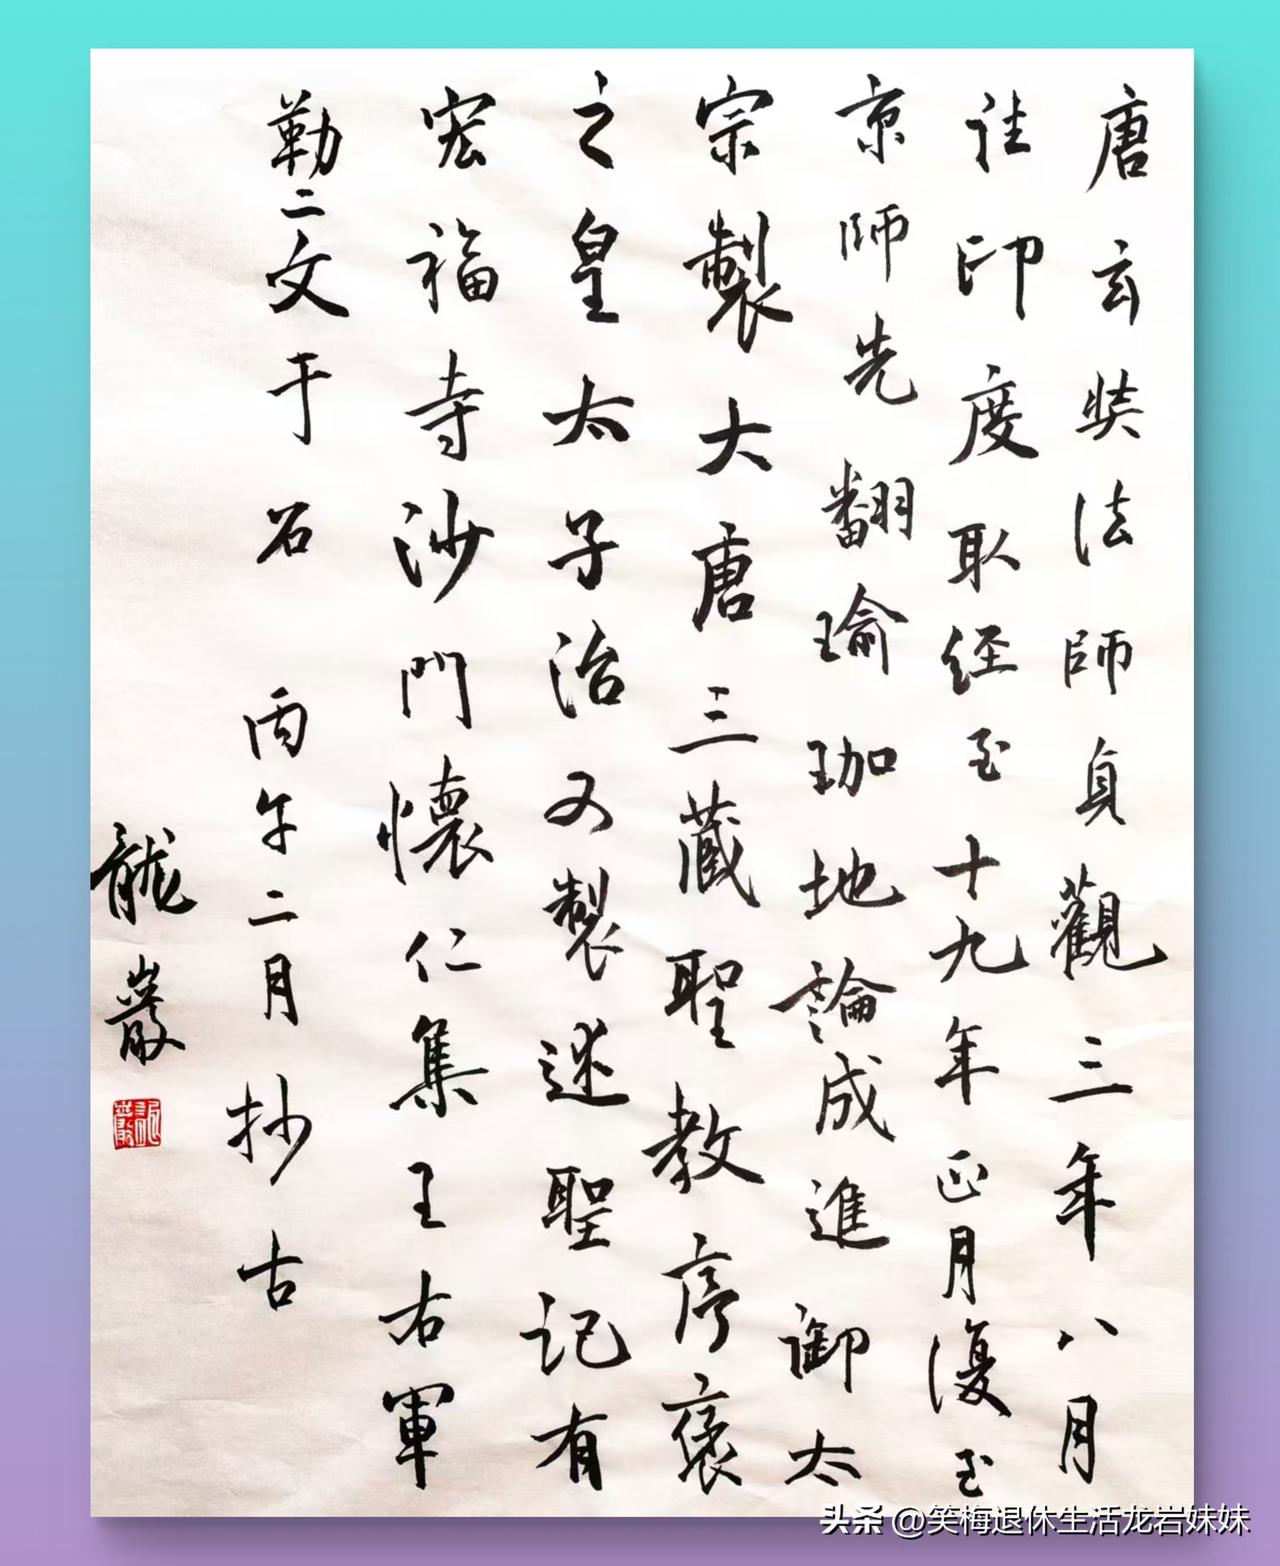 唐玄奘法師貞觀三年八月
往印度取经至十九年正月復至
京師先翻瑜珈地論成進御太
宗製大唐三藏聖教序褒
之皇太子治又製述聖記有
宏福寺沙門懷仁集王右軍
勒二文于石 丙午二月抄古
龍巖
龍巖
头条 @笑梅退休生活龙岩妹妹